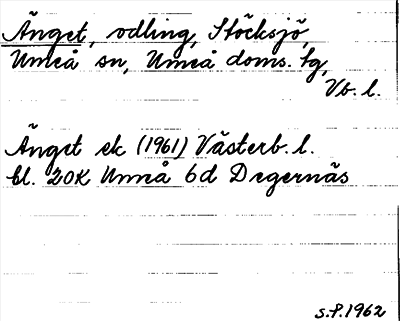 Änget, odling, Stöcksjö,
Umeå sn, Umeå doms. tg,
Vb. l.
Änget ek (1961) Västerb. l.
bl. 20K Umeå 6d Degernäs
S.P. 1962